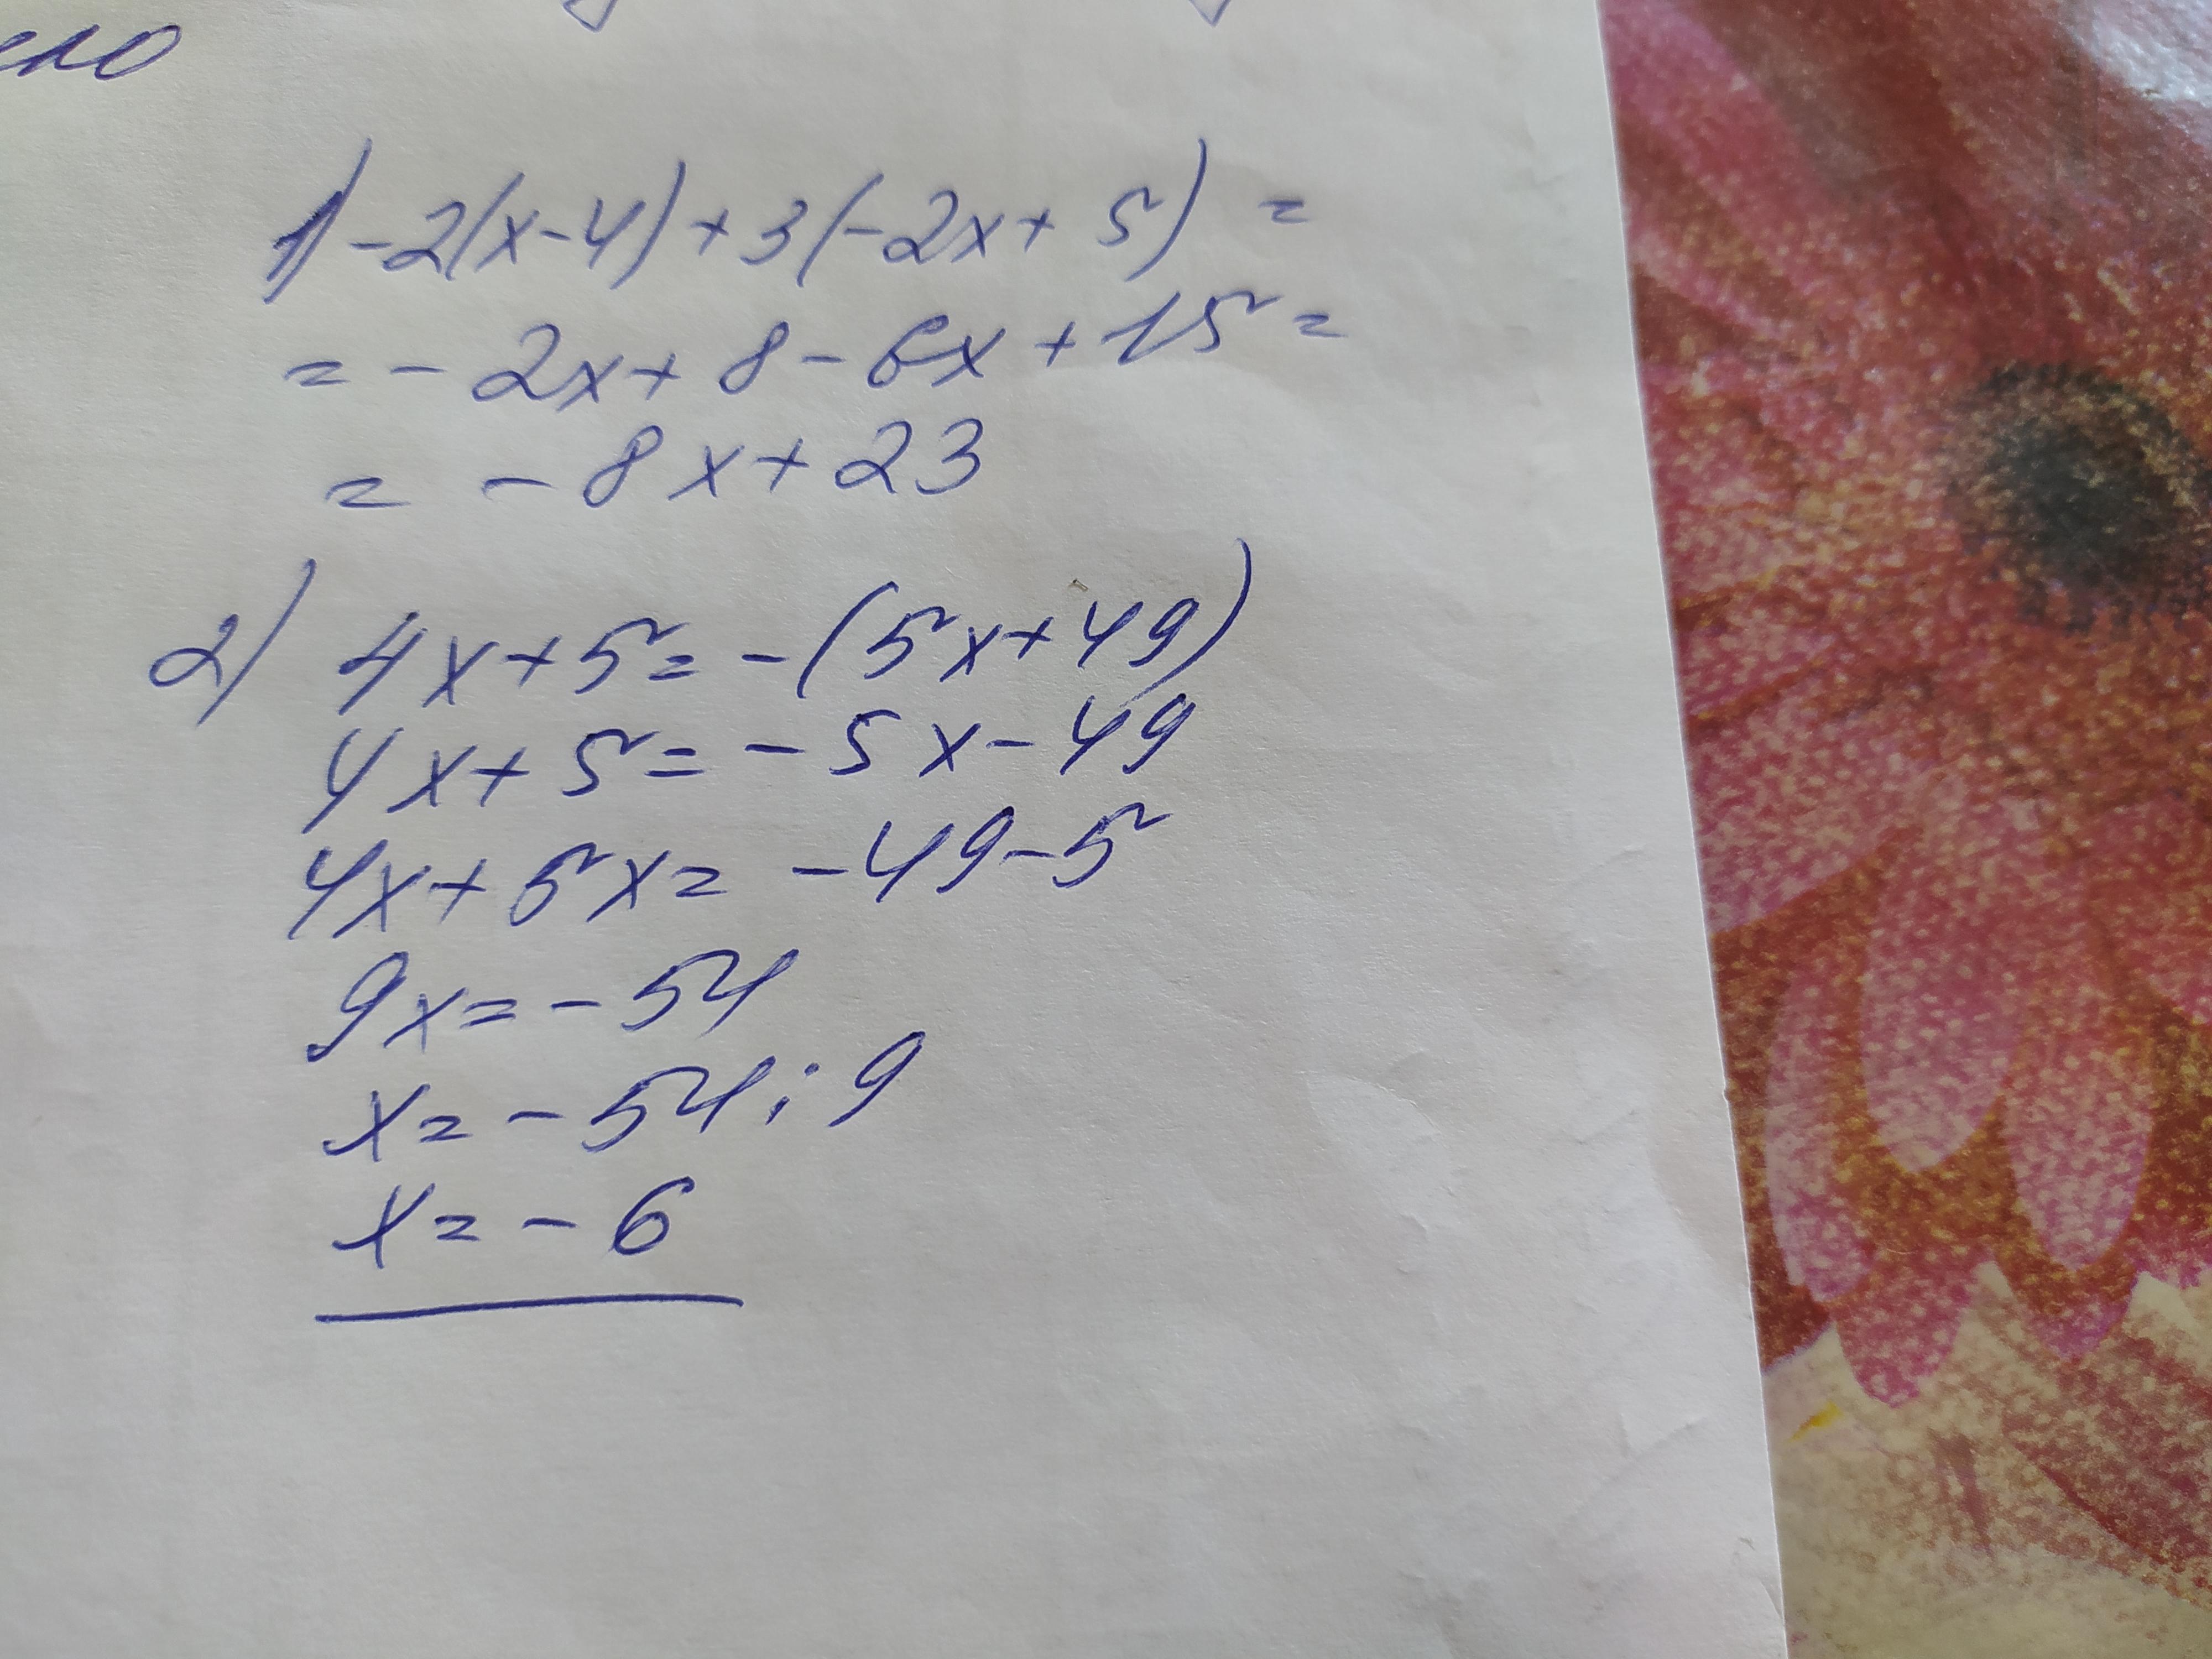 1) -2(x-4)+3(-2x+5)=
= -2x+8-6x+15=
= -8x+23
2) 4x+5=-(5x+49)
4x+5=-5x-49
4x+5x=-49-5
9x=-54
x=-54:9
x=-6